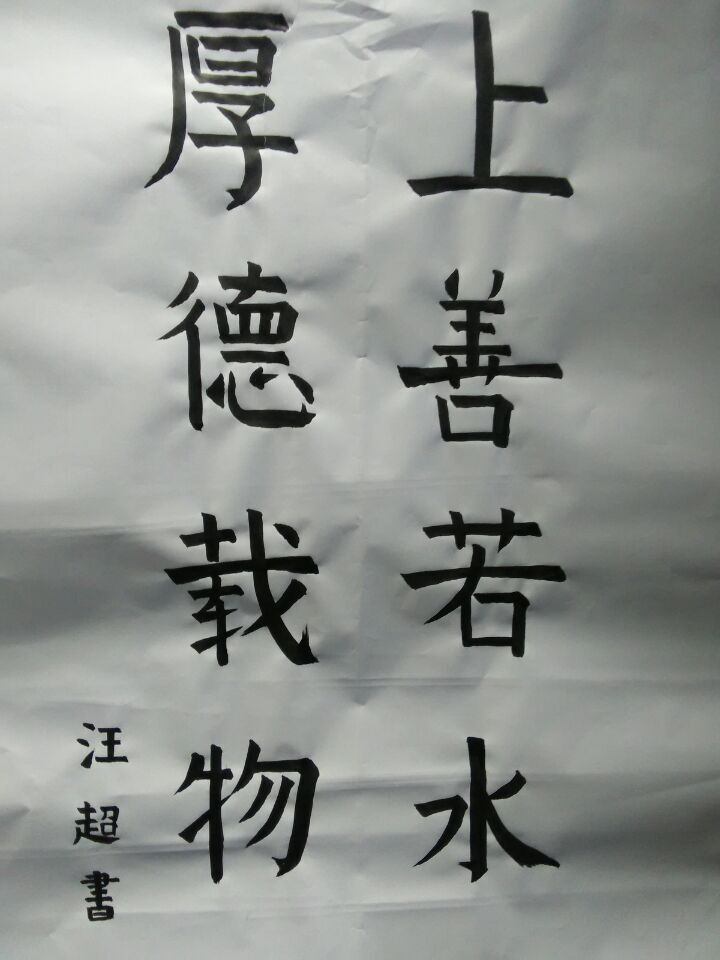 上善若水
厚德载物
汪超書